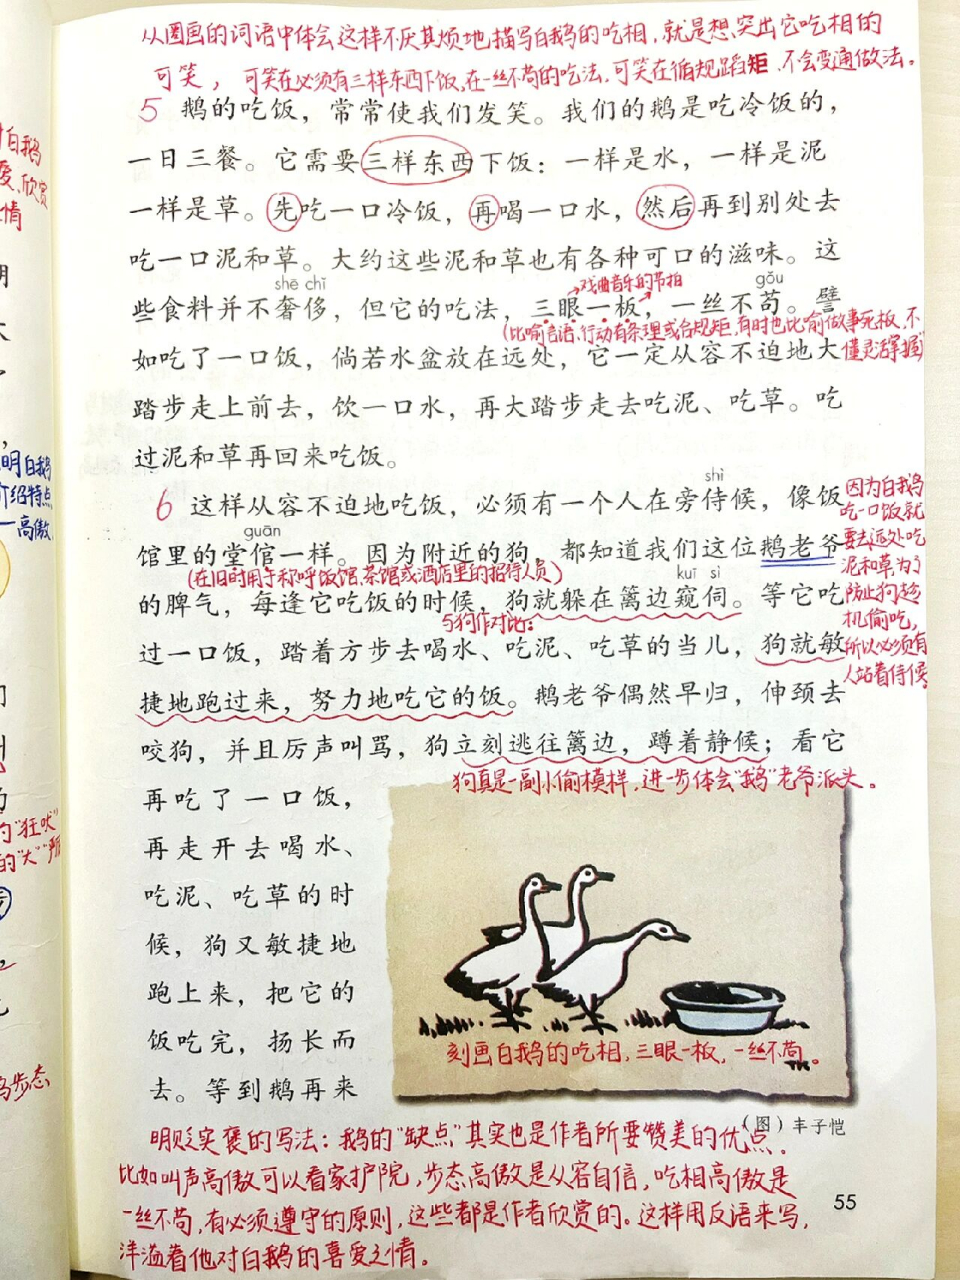 从圈画的词语中体会这样不厌其烦地描写白鹅的吃相,就是想突出它吃相的
可笑,可笑在必须有三样东西下饭,在一丝不苟的吃法,可笑在循规蹈矩,不会变通做法。
5 鹅的吃饭,常常使我们发笑。我们的鹅是吃冷饭的,
一日三餐。它需要三样东西下饭:一样是水,一样是泥
一样是草。先吃一口冷饭,再喝一口水,然后再到别处去
吃一口泥和草。大约这些泥和草也有各种可口的滋味。这
shē chǐ
戏曲音乐的节拍
gǒu
些食料并不奢侈,但它的吃法,三眼一板,一丝不苟。譬
(比喻言语、行动有条理或合规矩,有时也比喻做事死板,不
懂灵活掌握)
如吃了一口饭,倘若水盆放在远处,它一定从容不迫地大
踏步走上前去,饮一口水,再大踏步走去吃泥、吃草。吃
过泥和草再回来吃饭。
shì
6 这样从容不迫地吃饭,必须有一个人在旁侍候,像饭
guān
馆里的堂倌一样。因为附近的狗,都知道我们这位鹅老爷
(在旧时用于称呼饭馆、茶馆或酒店里的招待人员)
kuī sì
的脾气,每逢它吃饭的时候,狗就躲在篱边窥伺。等它吃
与狗作对比:
过一口饭,踏着方步去喝水、吃泥、吃草的当儿,狗就敏
捷地跑过来,努力地吃它的饭。鹅老爷偶然早归,伸颈去
咬狗,并且厉声叫骂,狗立刻逃往篱边,蹲着静候;看它
狗真是一副小偷模样,进一步体会"鹅"老爷派头。
因为白鹅
吃一口饭就
要去远处吃
泥和草为了
防止狗趁
机偷吃,
所以必须有
人站着侍候。
再吃了一口饭,
再走开去喝水、
吃泥、吃草的时
候,狗又敏捷地
跑上来,把它的
饭吃完,扬长而
去。等到鹅再来
刻画白鹅的吃相,三眼一板,一丝不苟。
TK
(图)丰子恺
明贬实褒的写法:鹅的"缺点"其实也是作者所要赞美的优点.
比如叫声高傲可以看家护院,步态高傲是从容自信,吃相高傲是
一丝不苟,有必须遵守的原则,这些都是作者欣赏的。这样用反语来写,
洋溢着他对白鹅的喜爱之情。
55
白鹅
爱、欣赏
情
明白鹅
介绍特点
—高傲
的"狂吠"
的"大""严厉
步态